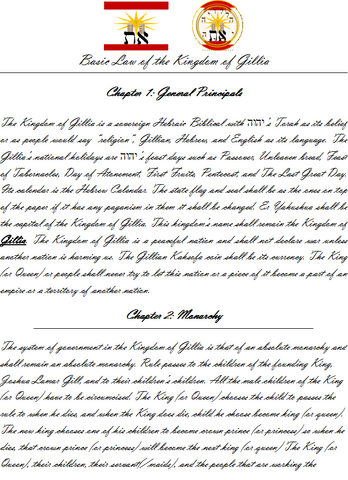 את
את
Basic Law of the Kingdom of Gillia
Chapter 1: General Principals
The Kingdom of Gillia is a sovereign Hebraic Biblical with יהוה's Torah as its belief
or as people would say "religion", Gillian, Hebrew, and English as its language. The
Gillia's national holidays are יהוה's feast days such as Passover, Unleaven bread, Feast
of Tabernacles, Day of Atonement, First Fruits, Pentecost, and The Last Great Day.
Its calendar is the Hebrew Calendar. The state flag and seal shall be as the ones on top
of the paper if it has any paganism in them it shall be changed. Er Yahushua shall be
the capital of the Kingdom of Gillia. This kingdom's name shall remain the Kingdom of
Gillia. The Kingdom of Gillia is a peaceful nation and shall not declare war unless
another nation is harming us. The Gillian Kahsofa coin shall be its currency. The King
(or Queen) or people shall never try to let this nation or a piece of it become a part of an
empire or a territory of another nation.
Chapter 2: Monarchy
The system of government in the Kingdom of Gillia is that of an absolute monarchy and
shall remain an absolute monarchy. Rule passes to the children of the founding King,
Joshua Lamar Gill, and to their children's children. All the male children of the King
(or Queen) have to be circumcised. The King (or Queen) chooses the child to passes the
rule to when he dies, and when the King does die, child he chose become king (or queen).
The new king chooses one of his children to become crown prince (or princess) so when he
dies, that crown prince (or princess) will become the next king (or queen) The King (or
Queen), their children, their servant(/maids), and the people that are working the